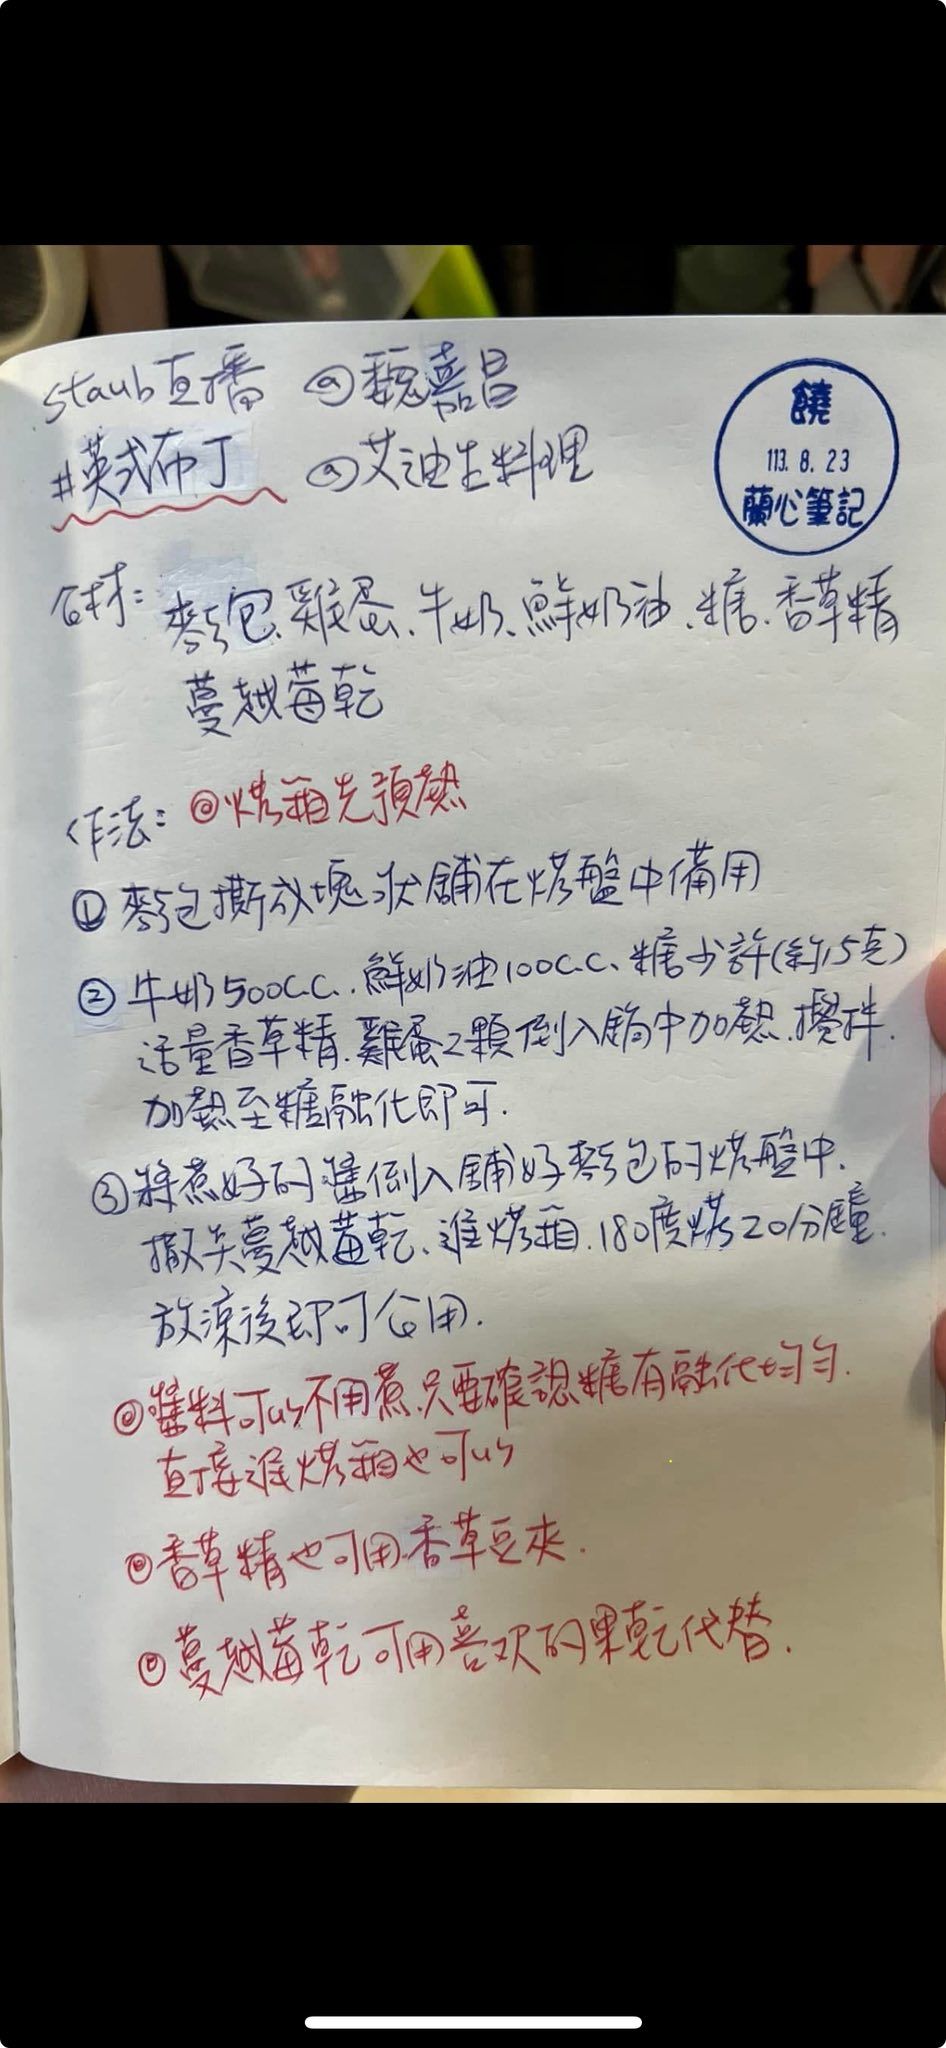 staub直播 @魏嘉呂
#英式布丁 @艾迪生料理
饒
113. 8. 23
蘭心筆記
食材: 麵包、雞蛋、牛奶、鮮奶油、糖、香草精
蔓越莓乾
作法: ◎烤箱先預熱
① 麵包撕成塊狀舖在烤盤中備用
② 牛奶500C.C.、鮮奶油100C.C、糖少許(約15克)
適量香草精、雞蛋2顆倒入鍋中加熱、攪拌.
加熱至糖融化即可.
③ 將煮好的漿倒入舖好麵包的烤盤中.
撒上蔓越莓乾、進烤箱、180度烤20分鐘.
放涼後即可食用.
◎漿料可以不用煮、只要確認糖有融化均勻.
直接進烤箱也可以
◎香草精也可用香草豆夾.
◎蔓越莓乾可用喜欢的果乾代替.